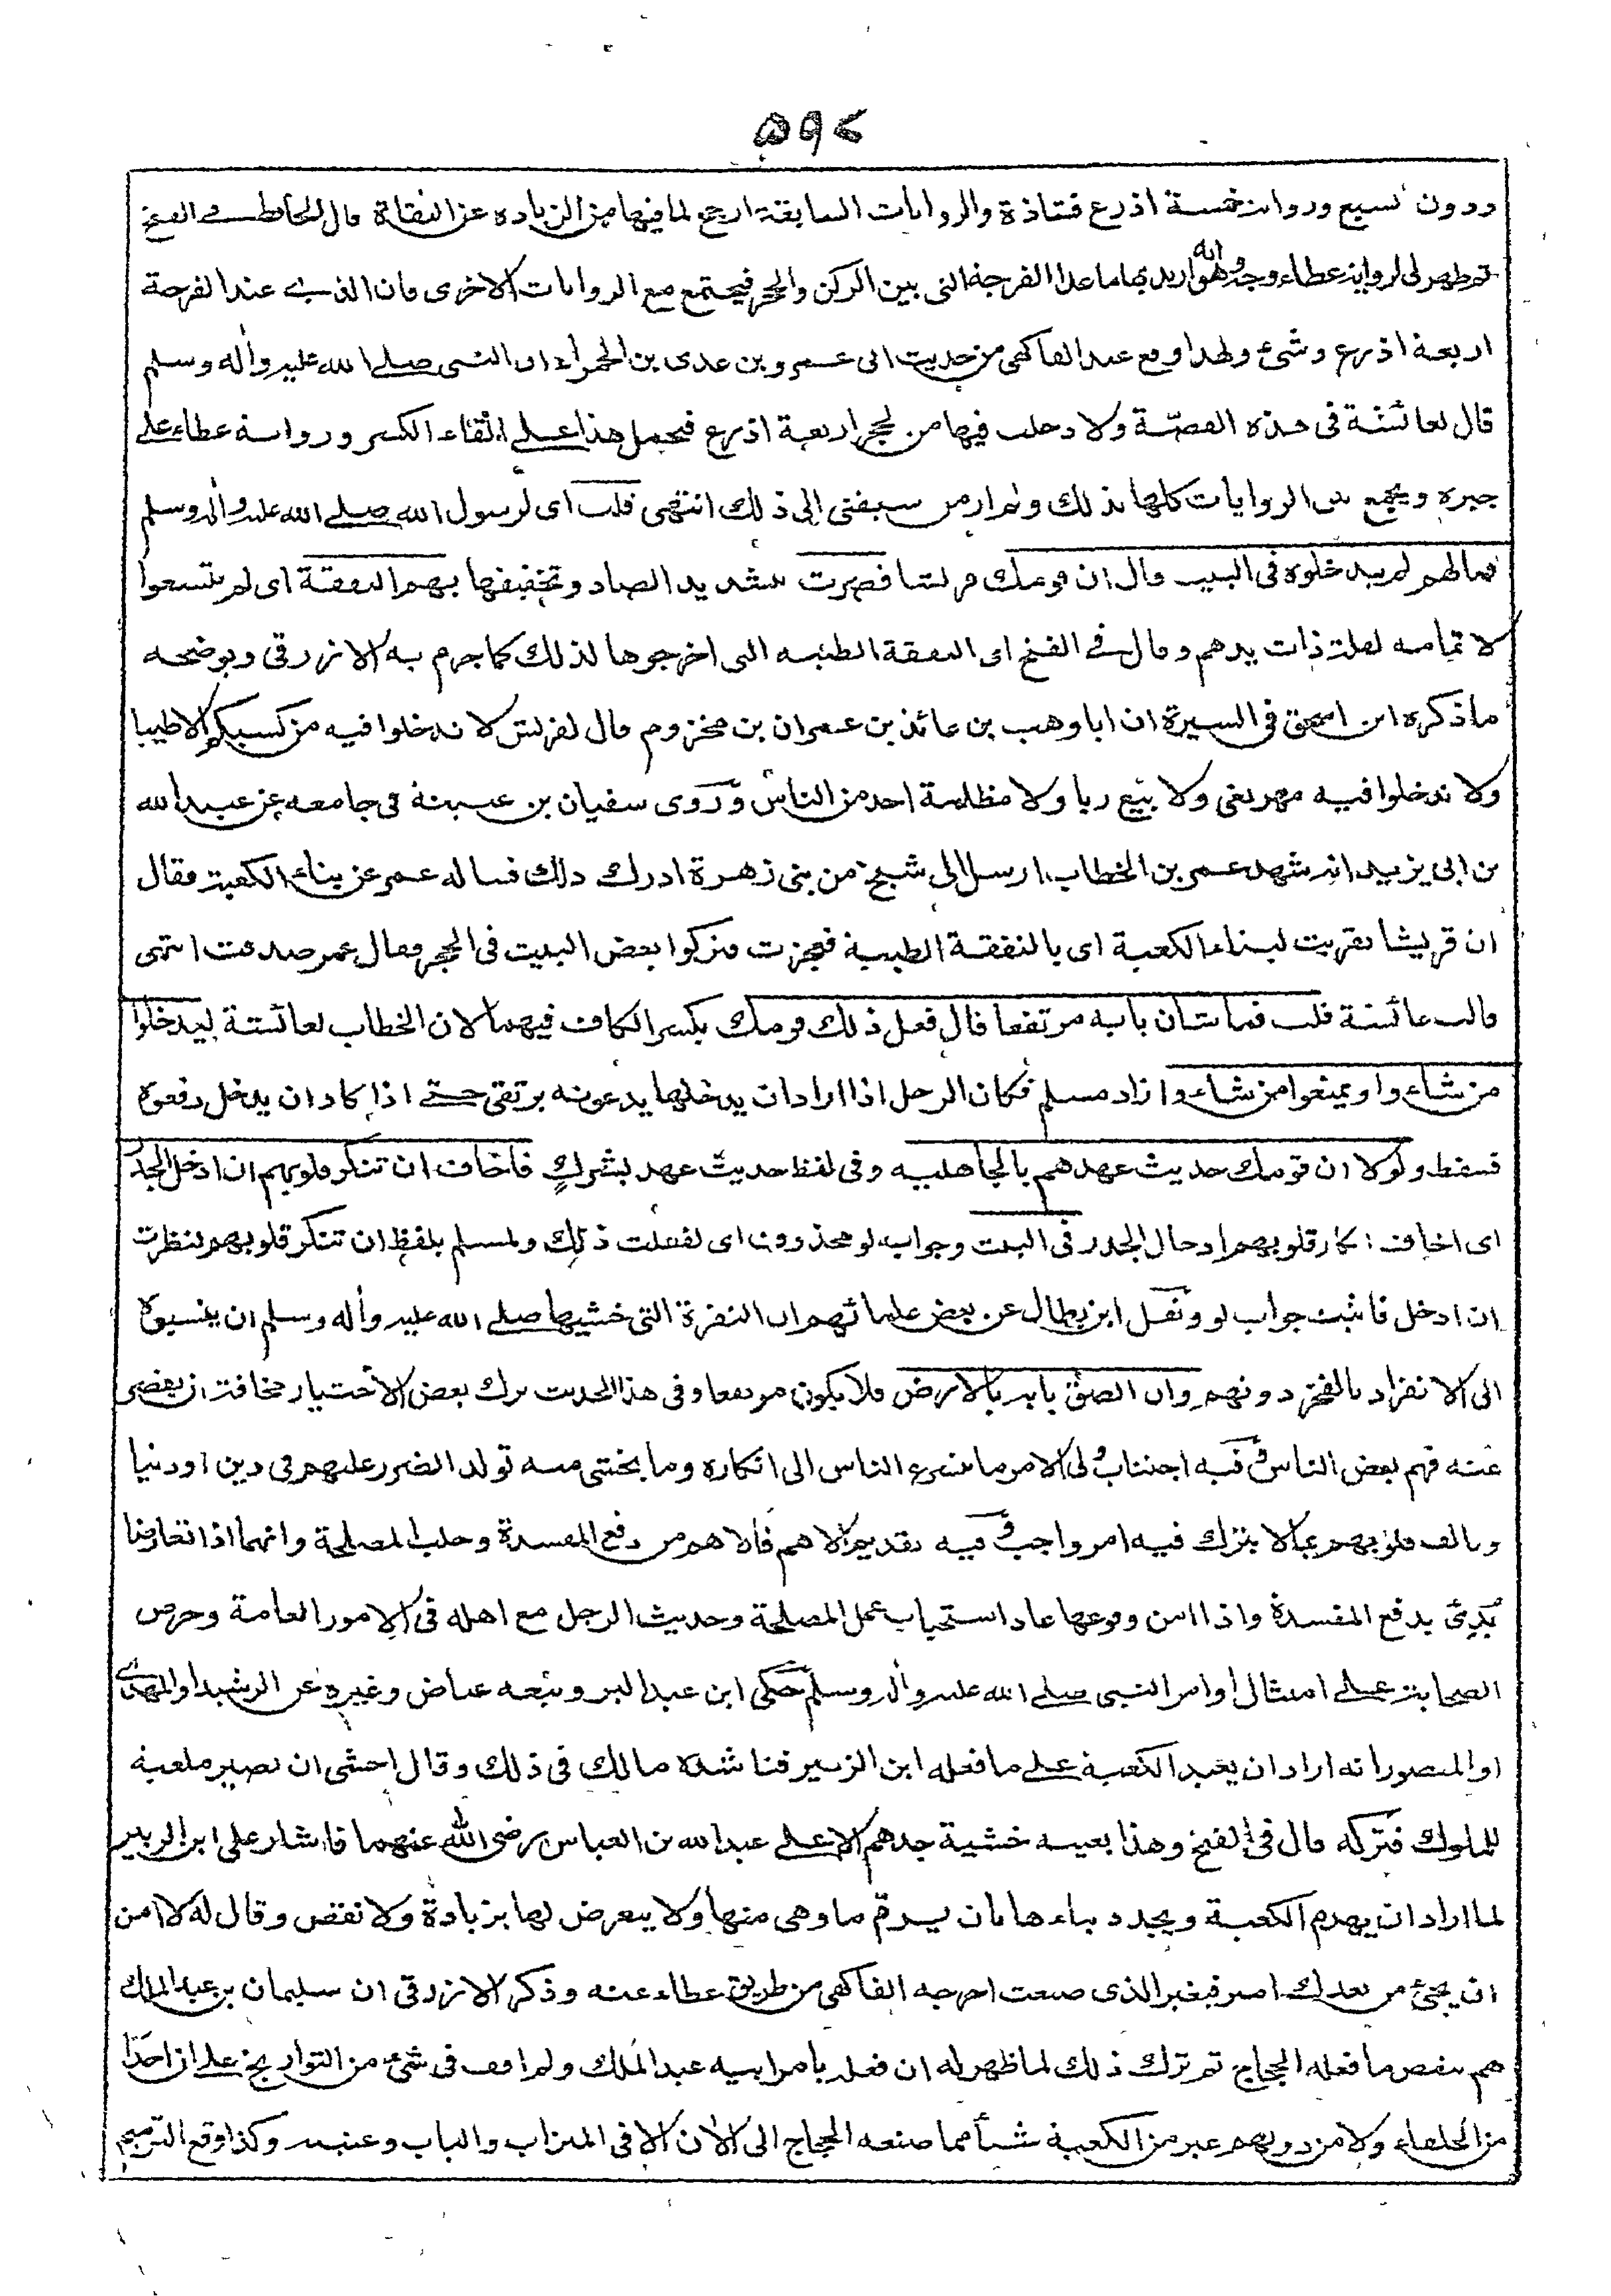 ٥٩٢
ودون تسبع ورواية خمسة اذرع فشاذة والروايات السابقة ارجح لما فيها من الزيادة عن الثقاة قال الحافظ في الفتح
ثم ظهر لى لرواية عطاء وجه وهو انه اريد بها ما عدا الفرجة التى بين الركن والحجر فيجتمع مع الروايات الاخرى فان الذى عند الفرجة
اربعة اذرع وشئ ولهذا وقع عند الفاكهى من حديث ابى عمرو بن عدى بن الحمراء ان النبى صلے الله عليه واٰله وسلم
قال لعائشة فى هذه القصّة ولادخلت فيها من الحجر اربعة اذرع فيحمل هذا علے القاء الكسر ورواية عطاء علے
جبره ويجمع بين الروايات كلها بذلك ولم ار من سبقنى الى ذلك انتهى قلت اى لرسول الله صلے الله عليه واٰله وسلم
فما لهم لم يدخلوه فى البيت قال ان قومك قريشا قصرت بتشديد الصاد وتخفيفها بهم النفقة اى لم يتسعوا
لاتمامه لقلة ذات يدهم وقال فے الفتح اى النفقة الطيبة التى اخرجوها لذلك كما جزم به الازرقى ويوضحه
ما ذكره ابن اسحق فى السيرة ان ابا وهب بن عائذ بن عمران بن مخزوم قال لقريش لا تدخلوا فيه من كسبكم الا طيبا
ولا تدخلوا فيه مهر بغى ولا بيع ربا ولا مظلمة احد من الناس وروى سفيان بن عيينة فى جامعه عن عبيد الله
بن ابى يزيد انه شهد عمر بن الخطاب ارسل الى شيخ من بنى زهرة ادرك ذلك فساله عمر عن بناء الكعبة فقال
ان قريشا تقربت لبناء الكعبة اى بالنفقة الطيبة فعجزت فتركوا بعض البيت فى الحجر فقال عمر صدقت انتهى
قالت عائشة قلت فما شان بابه مرتفعا قال فعل ذلك قومك بكسر الكاف فيهما لان الخطاب لعائشة ليدخلوا
من شاءوا ويمنعوا من شاءوا زاد مسلم فكان الرجل اذا اراد ان يدخلها يدعونه يرتقى حتے اذا كاد ان يدخل دفعوه
فسقط ولولا ان قومك حديث عهدهم بالجاهلية وفى لفظ حديث عهد بشرك فاخاف ان تنكر قلوبهم ان ادخل الجدر
اى اخاف انكار قلوبهم ادخال الجدر فى البيت وجواب لو محذوف اى لفعلت ذلك ولمسلم بلفظ ان تنكر قلوبهم لنظرت
ان ادخل فاثبت جواب لو ونقل ابن بطال عن بعض علمائهم ان النفرة التى خشيها صلے الله عليه واٰله وسلم ان ينسبوه
الى الانفراد بالفخر دونهم وان الصق بابه بالارض فلا يكون مرتفعا وفى هذا الحديث ترك بعض الاختيار مخافة ان يقصر
عنه فهم بعض الناس وفيه اجتناب ولى الامر ما يتسرع الناس الى انكاره وما يخشى منه تولد الضرر عليهم فى دين او دنيا
وتالف قلوبهم بما لا يترك فيه امر واجب وفيه تقديم الاهم فالاهم من دفع المفسدة وجلب المصلحة وانهما اذا تعارضا
بُدِئ بدفع المفسدة واذا امن وقوعها عاد استحباب عمل المصلحة وحديث الرجل مع اهله فى الامور العامة وحرص
الصحابة علے امتثال اوامر النبى صلے الله عليه واٰله وسلم حكى ابن عبد البر وتبعه عياض وغيره عن الرشيد او المهدى
او المنصور انه اراد ان يعيد الكعبة علے ما فعله ابن الزبير فناشده مالك فى ذلك وقال اخشى ان تصير ملعبة
للملوك فتركه قال فى الفتح وهذا بعينه خشية جدهم الاعلے عبد الله بن العباس رضى الله عنهما فاشار على ابن الزبير
لما اراد ان يهدم الكعبة ويجدد بناءها بان يرمّ ما وهى منها ولا يتعرض لها بزيادة ولا نقص وقال له لا امن
ان يجئ من بعدك امير فيغير الذى صنعت اخرجه الفاكهى من طريق عطاء عنه وذكر الازرقى ان سليمان بن عبد الملك
هم بنقص ما فعله الحجاج ثم ترك ذلك لما ظهر له ان فعله بامر ابيه عبد الملك ولم اقف فى شئ من التواريخ على ان احدا
من الخلفاء ولا من دونهم غير من الكعبة شيأ مما صنعه الحجاج الى الاٰن الا فى الميزاب والباب وعتبته وكذا وقع الترميم